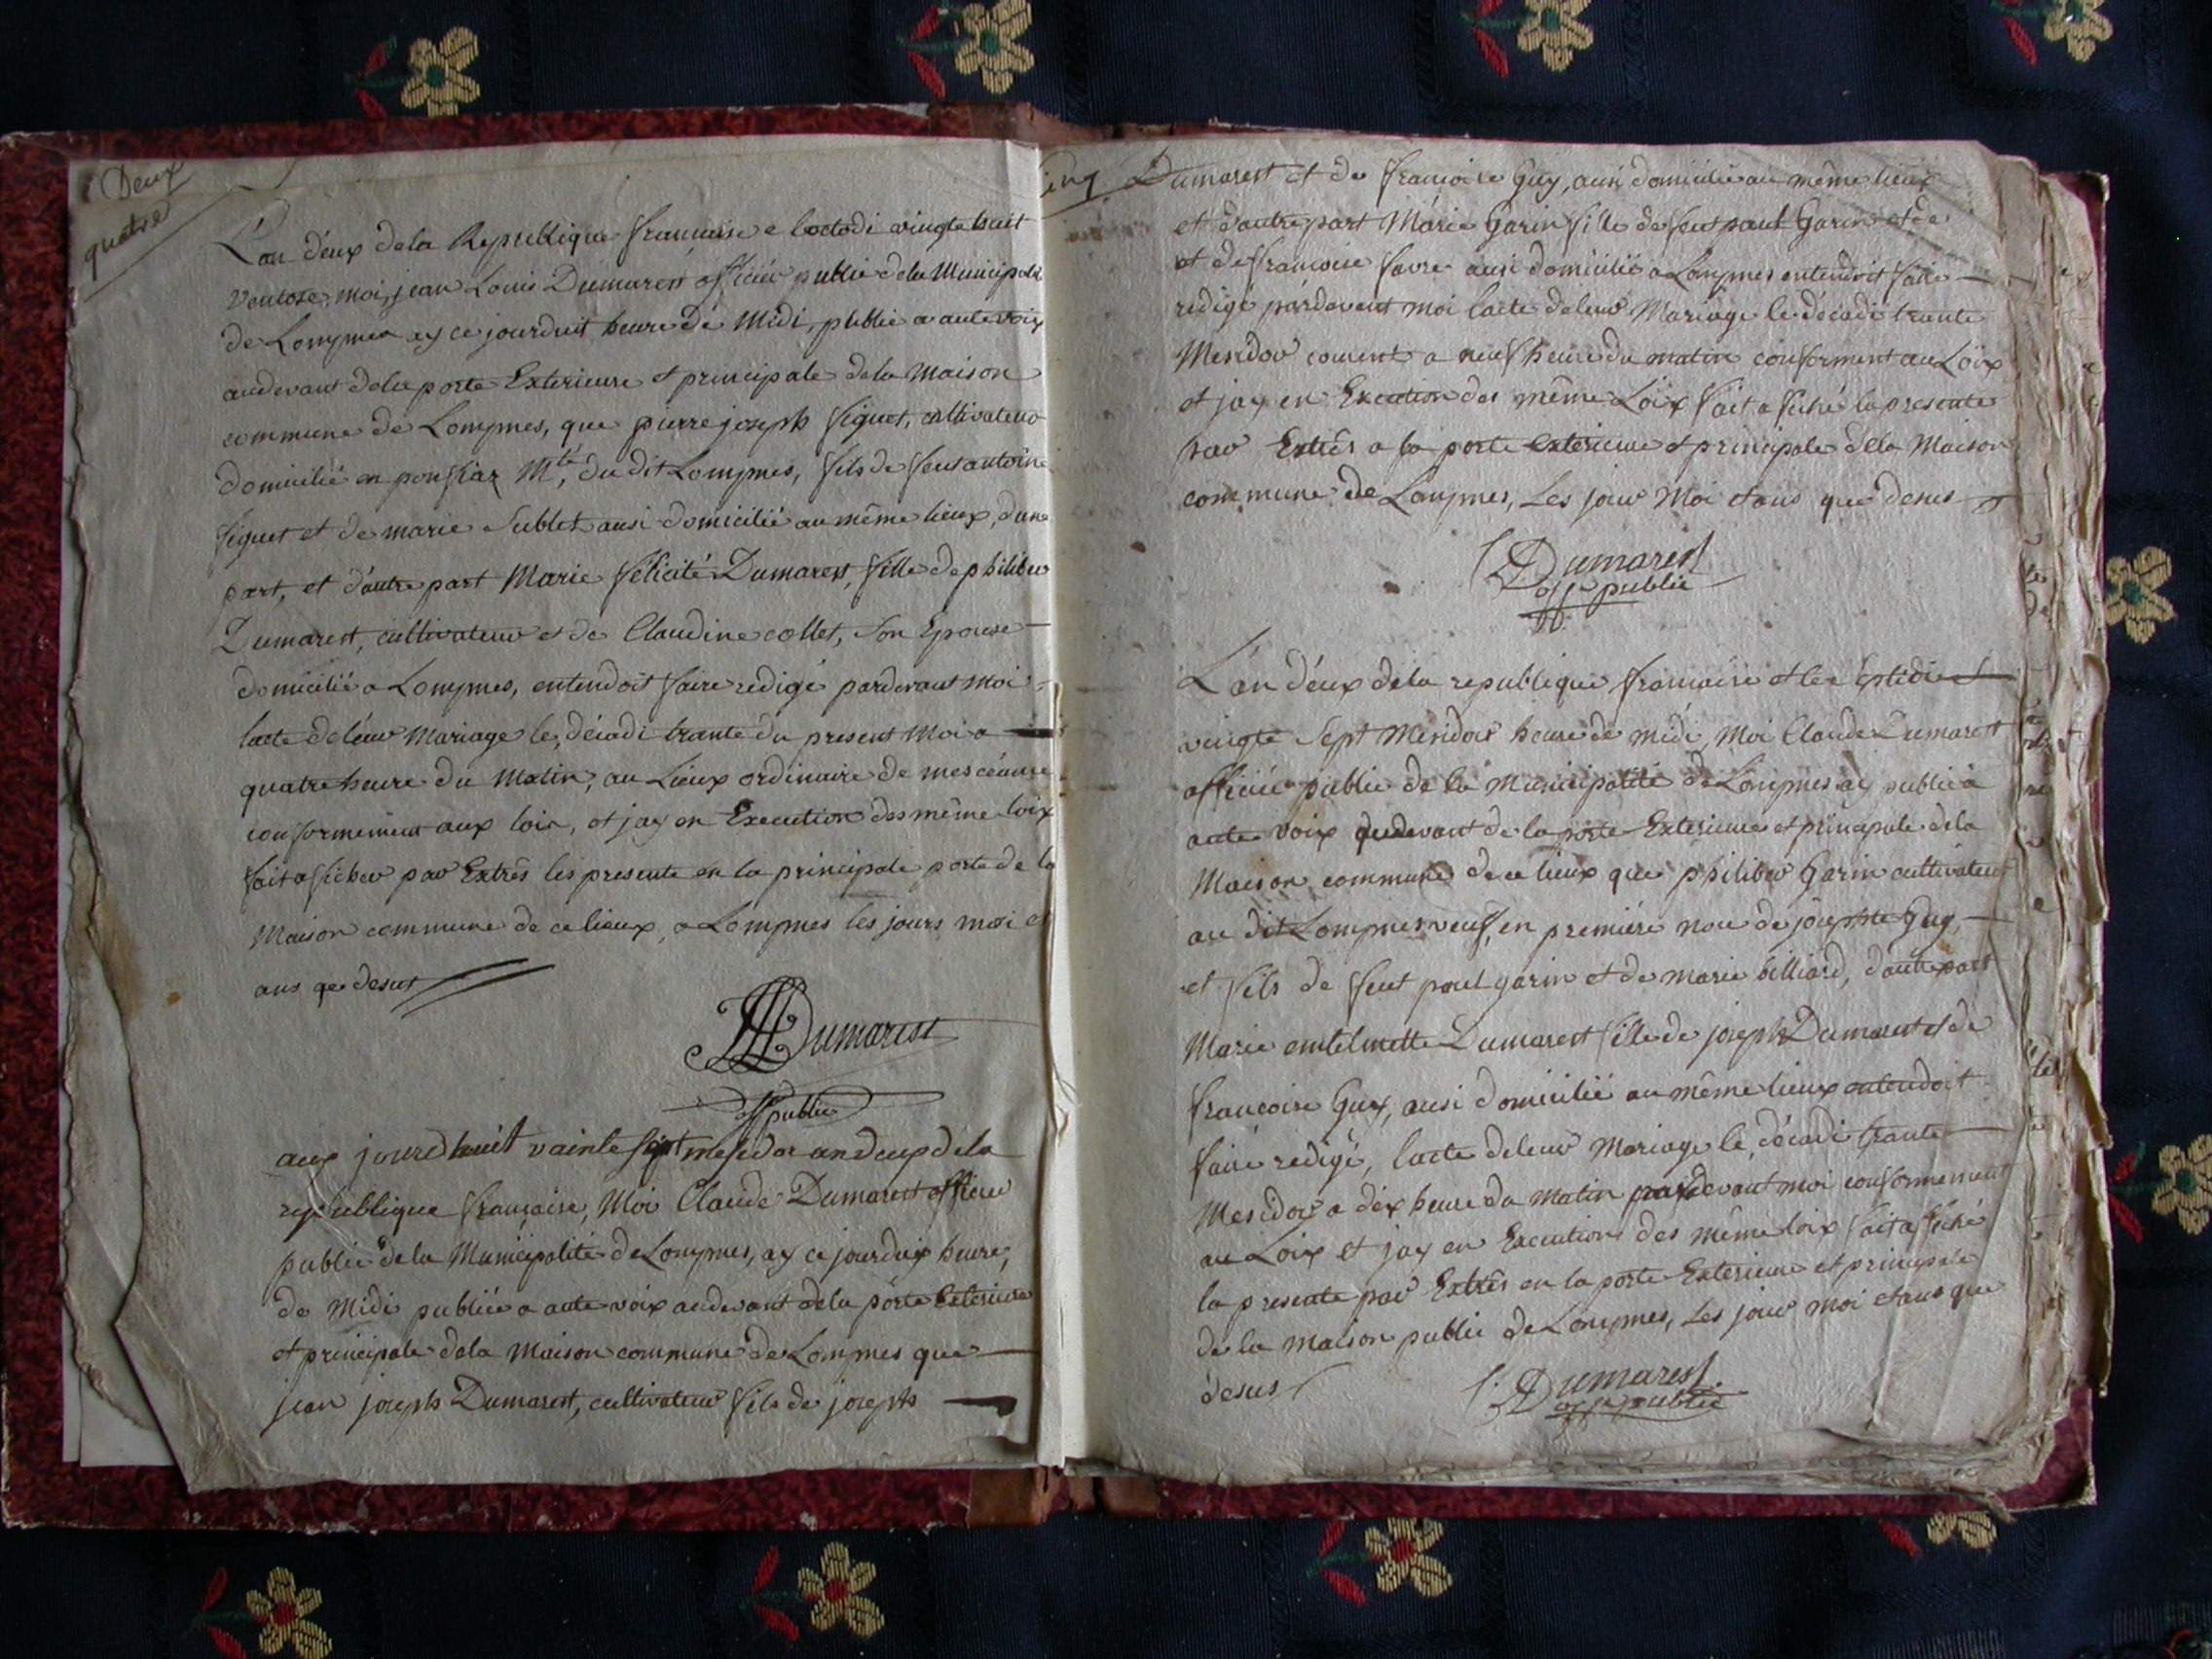 Deux
quatre
L'an deux de la Republique francaise e loctodi vingte huit
Ventose, moi, jean Louis Dumarest officier public de la Municipalit
de Lompnes ay ce jourduit heure de Midi, publié a aute voix
au devant de la porte Exterieure et principale de la Maison
commune de Lompnes, que pierre joseph figuet, cultivateur
domicilié en Mté, du dit Lompnes, fils de feut antoine
figuet et de marie Sublet ausi domicilié au même lieux, dune
part, et dautre part Marie felicité Dumarest, fille de philiber
Dumarest, cultivateur et de Claudine collet, Son Epouse
domicilié a Lompnes, entendoit faire redigé pardevant moi
lacte de leur Mariage le, décadi trante du present Moi a
quatre heure du Matin, au Lieux ordinaire de mes céance
conformement aux loix, et jay en Execution des même loix
fait aficher par Extrês les presente en la principale porte de la
Maison commune de ce lieux, a Lompnes les jours moi et
ans que desut
JLDumarest
off public
aux jourdhuit vainte sept mesidor an deux de la
republique francaise, Moi Claude Dumarest officier
public de la Municipalité de Lompnes, ay ce jourduix heure,
de Midi publiée a aute voix au devant de la porte Exterieure
et principale de la Maison commune de Lompnes que
jean joseph Dumarest, cultivateur fils de joseph
cinq
Dumarest et de francoise Guy, ausi domicilié au même lieux
et d'autre part Marie Garin fille de feut paul Garin et de
et de francoise favre ausi domicilié a Lompnes entendoit faire
redigé pardevent moi lacte de leur Mariage le décadi trante
Mesidor courent a neuf heure du matin conforment au Loix
et jay en Execution des même Loix fait afiché la presente
par Extrês a la porte exterieure et principale de la Maison
commune de Lompnes, Les jour Moi et ans que desus
Dumarest
off public
L'an deux de la republique francaise et le Septidi
vingte Sept Mesidor heure de midi, Moi Claude Dumarest
officié public de la Municipalité de Lompnes ay publié a
aute voix audevant de la porte Exterieure et principale de la
Maison commune de ce lieux que philiber Garin cultivateur
au dit Lompnes veuf, en premiére de Guy,
et fils de feut paul garin et de marie billiard, dautre part
Marie Dumarest fille de joseph Dumarest et de
francoise Guy, ausi domicilié au même lieux entendoit
faire redigé, lacte de leur Mariage le, décadi trante
Mesidor a dix heure du Matin pardevant moi conformement
au Loix et jay en Execution des même loix fait afiché
la presente par Extrês en la porte Exterieure et principale
de la maison public de Lompnes, Les jour moi et ans que
desus
Dumarest.
off public